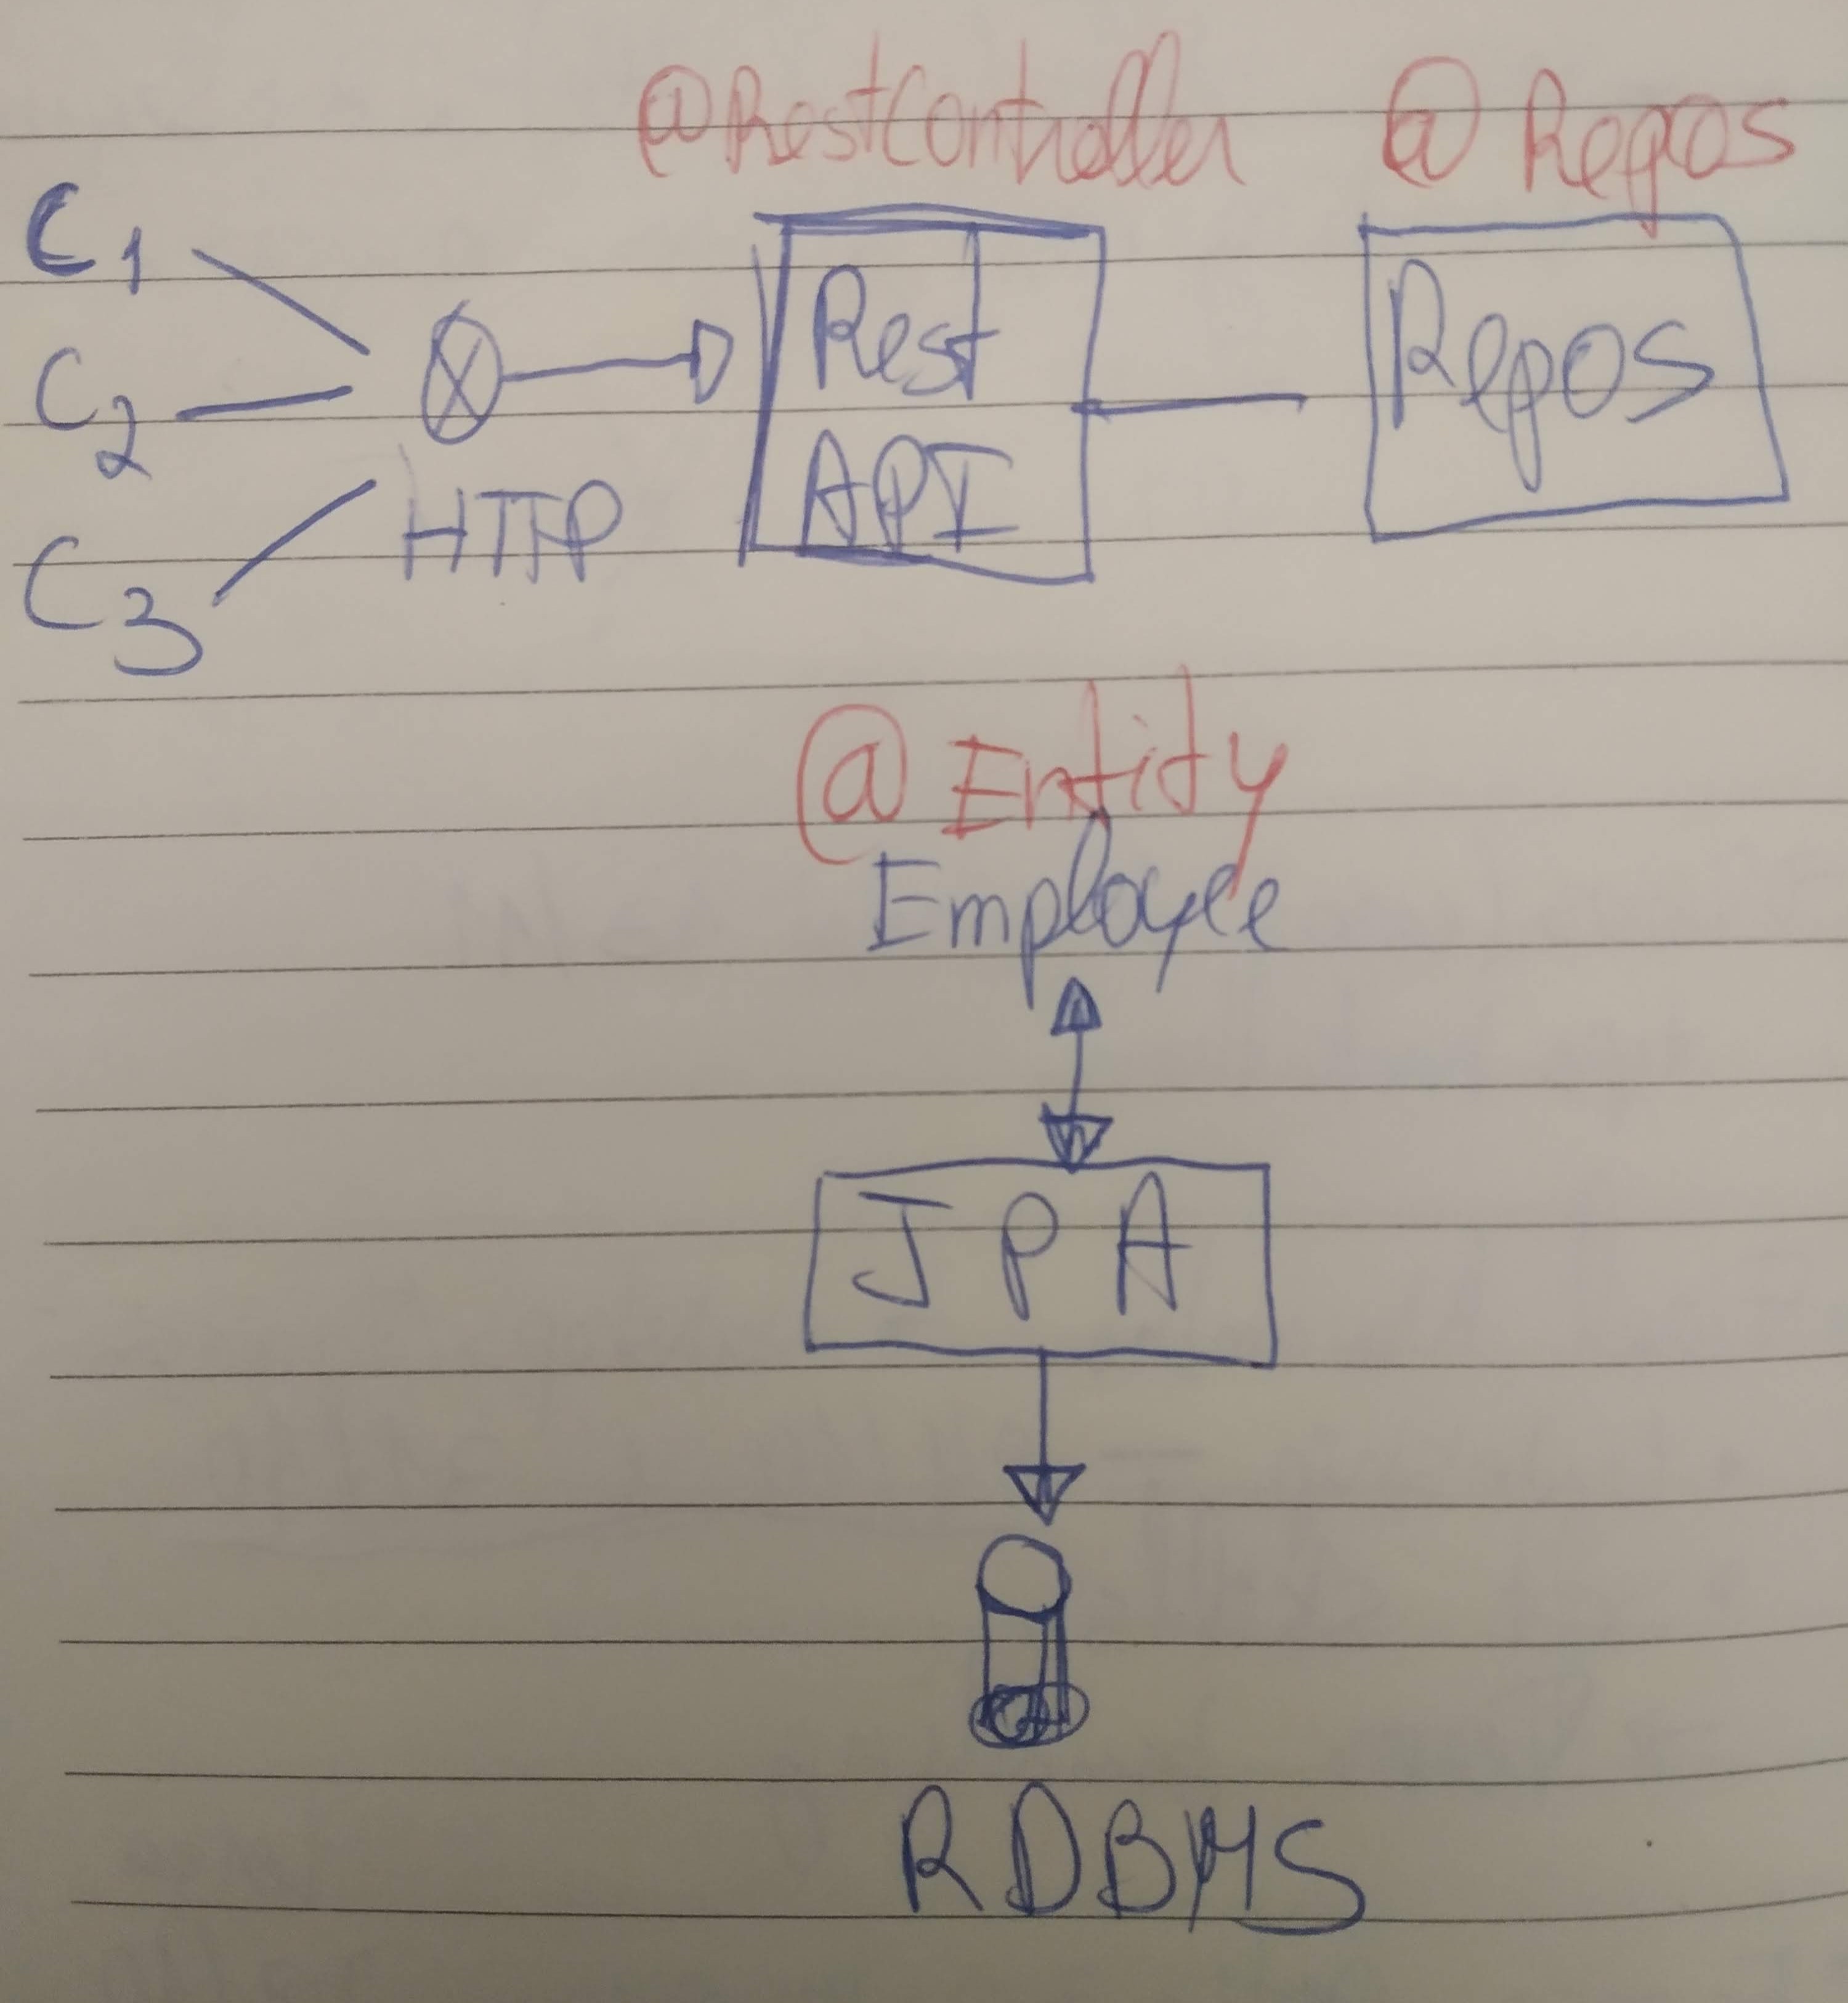 @RestController @ Repos
C1
C2
C3
HTTP
Rest
API
Repos
@ Entity
Employee
J P A
RDBMS